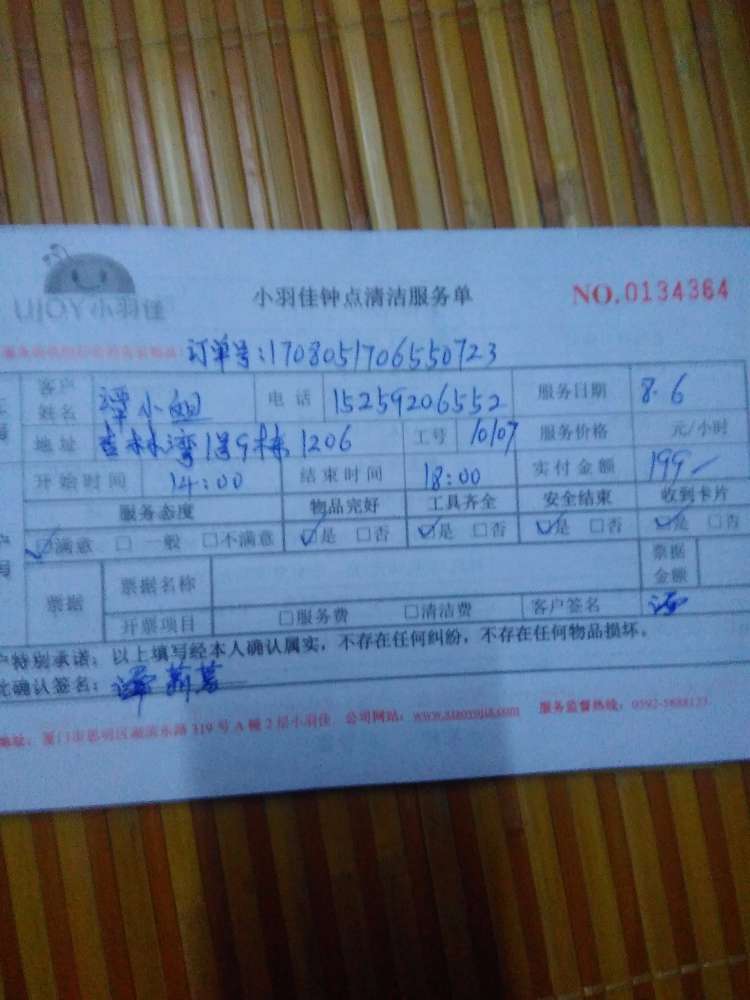 UJOY小羽佳
小羽佳钟点清洁服务单
NO.0134364
订单号:1708051706550723
客户姓名 谭小姐 电话 15259206552 服务日期 8.6
地址 1206 工号 10107 服务价格 元/小时
开始时间 14:00 结束时间 18:00 实付金额 199
服务态度 物品完好 工具齐全 安全结束 收到卡片
☑满意 □一般 □不满意 ☑是 □否 ☑是 □否 ☑是 □否 ☑是 □否
票据 票据名称 票据金额
开票项目 □服务费 □清洁费 客户签名
户特别承诺:以上填写经本人确认属实,不存在任何纠纷,不存在任何物品损坏。
此确认签名:
地址:厦门市思明区湖滨东路319号A幢2层小羽佳 公司网站:www.xiaoyujia.com 服务监督热线: